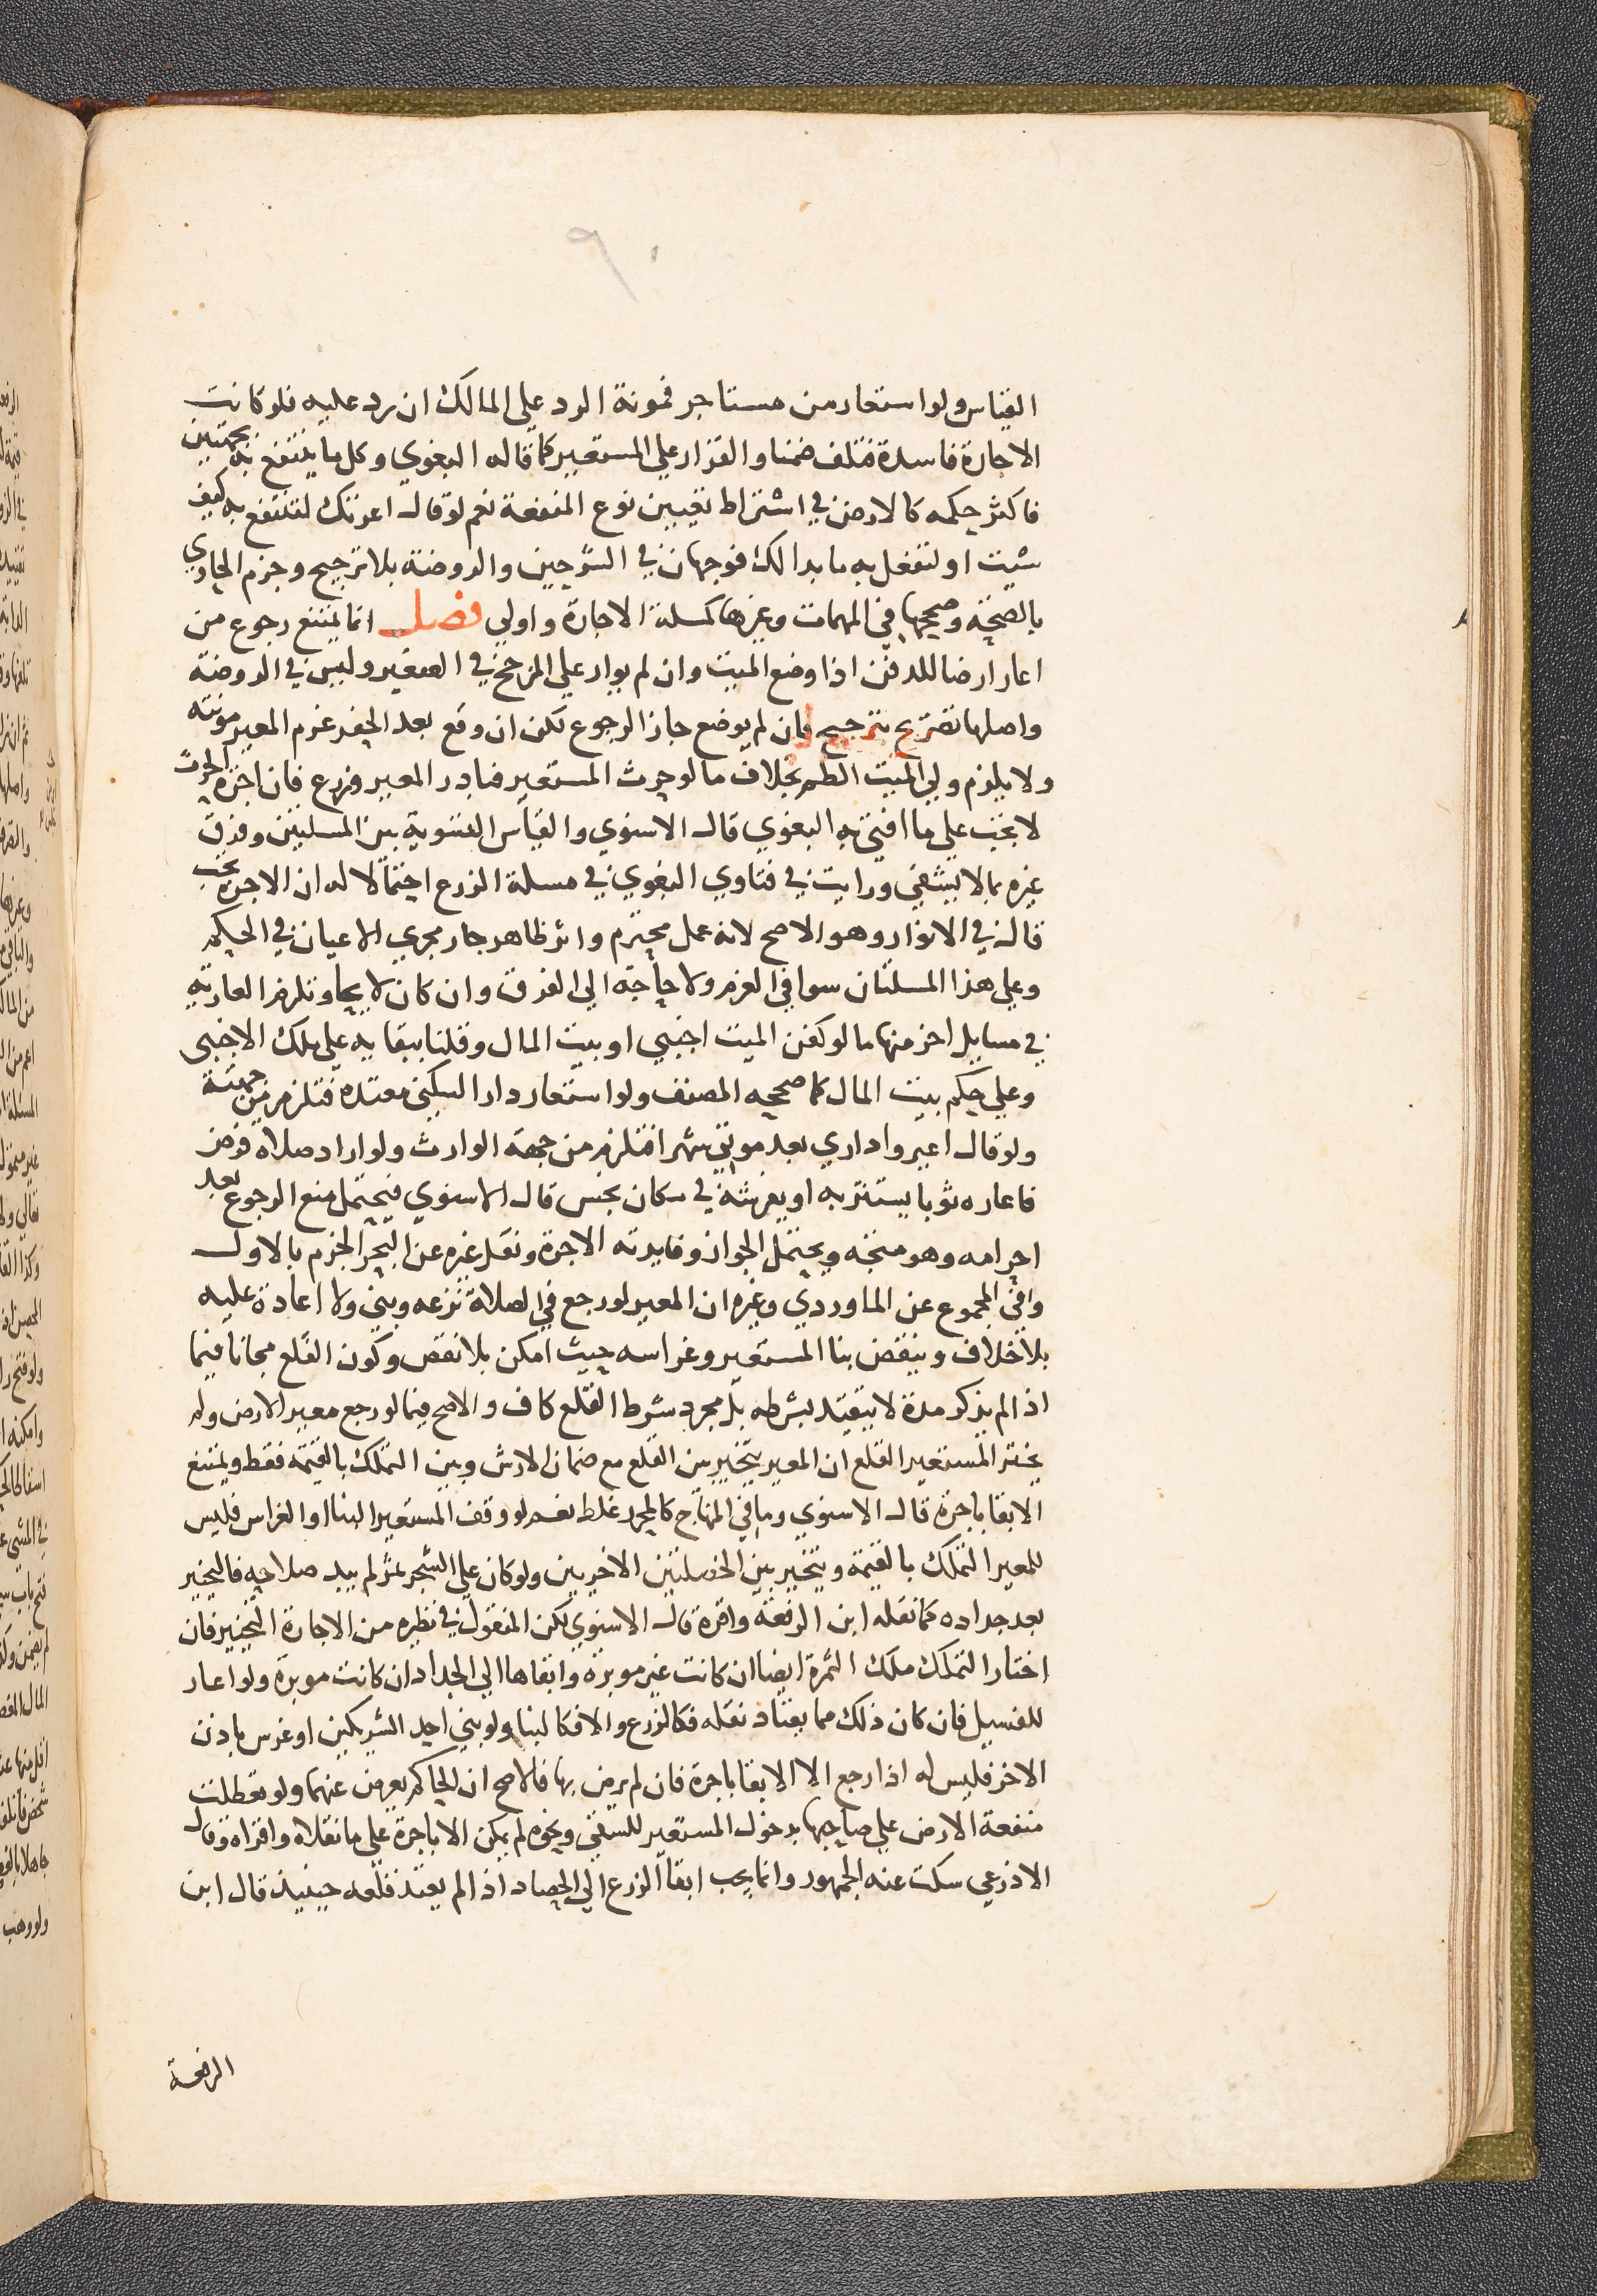 ٩٠
القياس ولو استعار من مستاجر فمونة الرد علي المالك ان رد عليه فلو كانت
الاجارة فاسدة فتلف ضمنا والقرار علي المستعير كما قاله البغوي وكل ما ينتفع به بجهتين
فاكثر حكمه كالارض في اشتراط تعيين نوع المنفعة نعم لو قال اعرتك لتنتفع به كيف
شيت او لتفعل به ما بدا لك فوجهان في الشرحين والروضة بلا ترجيح وجزم الحاوي
بالصحة وصححها في المهمات وغيرها كمسلة الاجارة واولي فصل انما يمتنع رجوع من
اعار ارضا للدفن اذا وضع الميت وان لم يوار علي المرجح في الصغير وليس في الروضة
واصلها تصريح بترجيح فان لم يوضع جاز الرجوع لكن ان وقع بعد الحفر غرم المعير مونته
ولا يلزم ولي الميت الطم بخلاف ما لو حرث المستعير فبادر المعير وزرع فان اجرة الحرث
لا تجب علي ما افتي به البغوي قال الاسنوي والقياس التسوية بين المسلتين وفرق
غيره بما لا يشفي ورايت في فتاوي البغوي في مسلة الزرع احتمالا له ان الاجرة تجب
قال في الانوار وهو الاصح لانه عمل محترم واثر ظاهر جار مجري الاعيان في الحكم
وعلي هذا المسلتان سوا في الغرم ولا حاجة الي الفرق وان كان لايحا وتلزم العارية
في مسايل اخر منها ما لو كفن الميت اجنبي او بيت المال وقلنا ببقايه علي ملك الاجنبي
وعلي حكم بيت المال كما صححه المصنف ولو استعار دارا لسكني معتدة فتلزم من جهته
ولو قال اعيروا داري بعد موتي شهرا فتلزم من جهة الوارث ولو اراد صلاة فرض
فاعاره ثوبا يستتر به او يفرشه في مكان نجس قال الاسنوي فيحتمل منع الرجوع بعد
احرامه وهو متجه ويحتمل الجواز وفايدته الاجرة ونقل غيره عن البحر الجزم بالاول
وافي المجموع عن الماوردي وغيره ان المعير لو رجع في الصلاة نزعه وبني ولا اعادة عليه
بلا خلاف وينقض بنا المستعير وغراسه حيث امكن بلا نقص وكون القلع مجانا فيما
اذا لم يذكر مدة لا يتقيد بشرطه بل مجرد شرط القلع كاف والاصح فيما لو رجع معير الارض ولم
يختر المستعير القلع ان المعير يتخير بين القلع مع ضمان الارش وبين التملك بالقيمة فقط ويمتنع
الابقا باجرة قال الاسنوي وما في المنهاج كالمحرر غلط نعم لو وقف المستعير البنا او الغراس فليس
للمعير التملك بالقيمة ويتخير بين الخصلتين الاخريين ولو كان علي الشجر ثمر لم يبد صلاحه فالتخيير
بعد جداده كما نقله ابن الرفعة واقره قال الاسنوي لكن المنقول في نظيره من الاجارة التخيير فان
اختار التملك ملك الثمرة ايضا ان كانت غير موبرة وابقاها الي الجداد ان كانت موبرة ولو اعار
للفسيل فان كان ذلك مما يعتاد نقله فكالزرع والا فكالبنا ولو بني احد الشريكين او غرس باذن
الاخر فليس له اذا رجع الا الابقا باجرة فان لم يرض بها فالاصح ان الحاكم يعرض عنهما ولو تعطلت
منفعة الارض علي صاحبها بدخول المستعير للسقي ونحوه لم يمكن الا باجرة علي ما نقلاه واقراه وقال
الاذرعي سكت عنه الجمهور وانما يجب ابقا الزرع الي الحصاد اذا لم يعتد قلعه حينيذ قال ابن
الرفعة